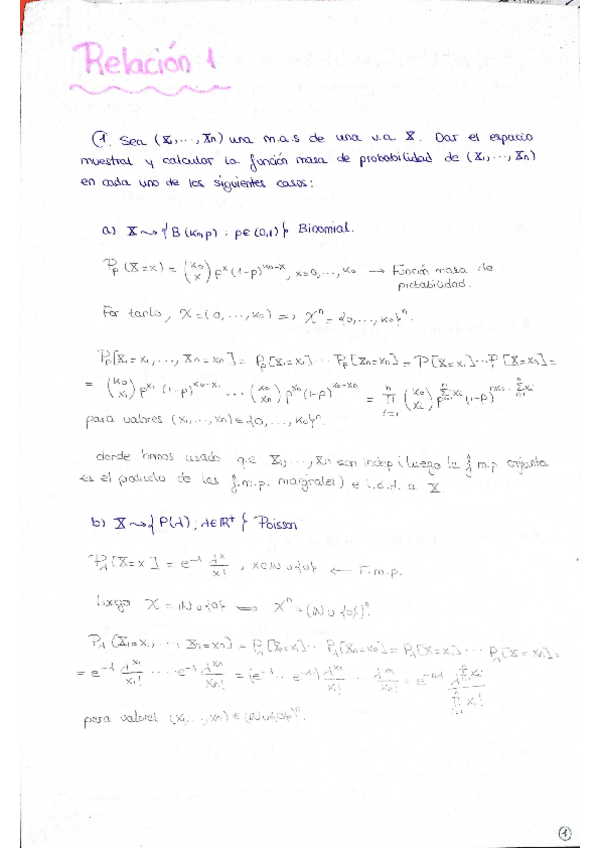 Relación 1
① Sea (X₁, ..., Xn) una m.a.s de una v.a X. Dar el espacio
muestral y calcular la función masa de probabilidad de (X₁, ..., Xn)
en cada uno de los siguientes casos:
a) X ⇝ { B(k₀,p) : p∈(0,1) } Binomial.
Pp(X=x) = (k₀ x) pˣ (1-p)^(k₀-x), x=0, ..., k₀ → Función masa de
probabilidad.
Por tanto, X = {0, ..., k₀} ⇒ Xⁿ = {0, ..., k₀}ⁿ.
Pp[X₁=x₁, ..., Xn=xn] = Pp[X₁=x₁] ... Pp[Xn=xn] = P[X=x₁] ... P[X=xn] =
= (k₀ x₁) p^x₁ (1-p)^(k₀-x₁) ... (k₀ xn) p^xn (1-p)^(k₀-xn) = ∏ᵢ₌₁ⁿ (k₀ xᵢ) p^(Σᵢ₌₁ⁿ xᵢ) (1-p)^(nk₀-Σᵢ₌₁ⁿ xᵢ)
para valores (x₁, ..., xn) ∈ {0, ..., k₀}ⁿ.
donde hemos usado que X₁, ..., Xn son indep (luego la f.m.p conjunta
es el producto de las f.m.p. marginales) e i.d. a X.
b) X ⇝ { P(λ) ; λ∈ℝ⁺ } Poisson
Pλ[X=x] = e^(-λ) λˣ/x! , x∈ℕ∪{0} ← F.m.p.
Luego X = ℕ∪{0} ⇒ Xⁿ = (ℕ∪{0})ⁿ.
Pλ(X₁=x₁, ..., Xn=xn) = Pλ[X₁=x₁] ... Pλ[Xn=xn] = Pλ[X=x₁] ... Pλ[X=xn] =
= e^(-λ) λ^x₁/x₁! ... e^(-λ) λ^xn/xn! = (e^(-λ) ... e^(-λ)) λ^x₁/x₁! ... λ^xn/xn! = e^(-nλ) λ^(Σᵢ₌₁ⁿ xᵢ)/∏ᵢ₌₁ⁿ xᵢ!
para valores (x₁, ..., xn) ∈ (ℕ∪{0})ⁿ.
①